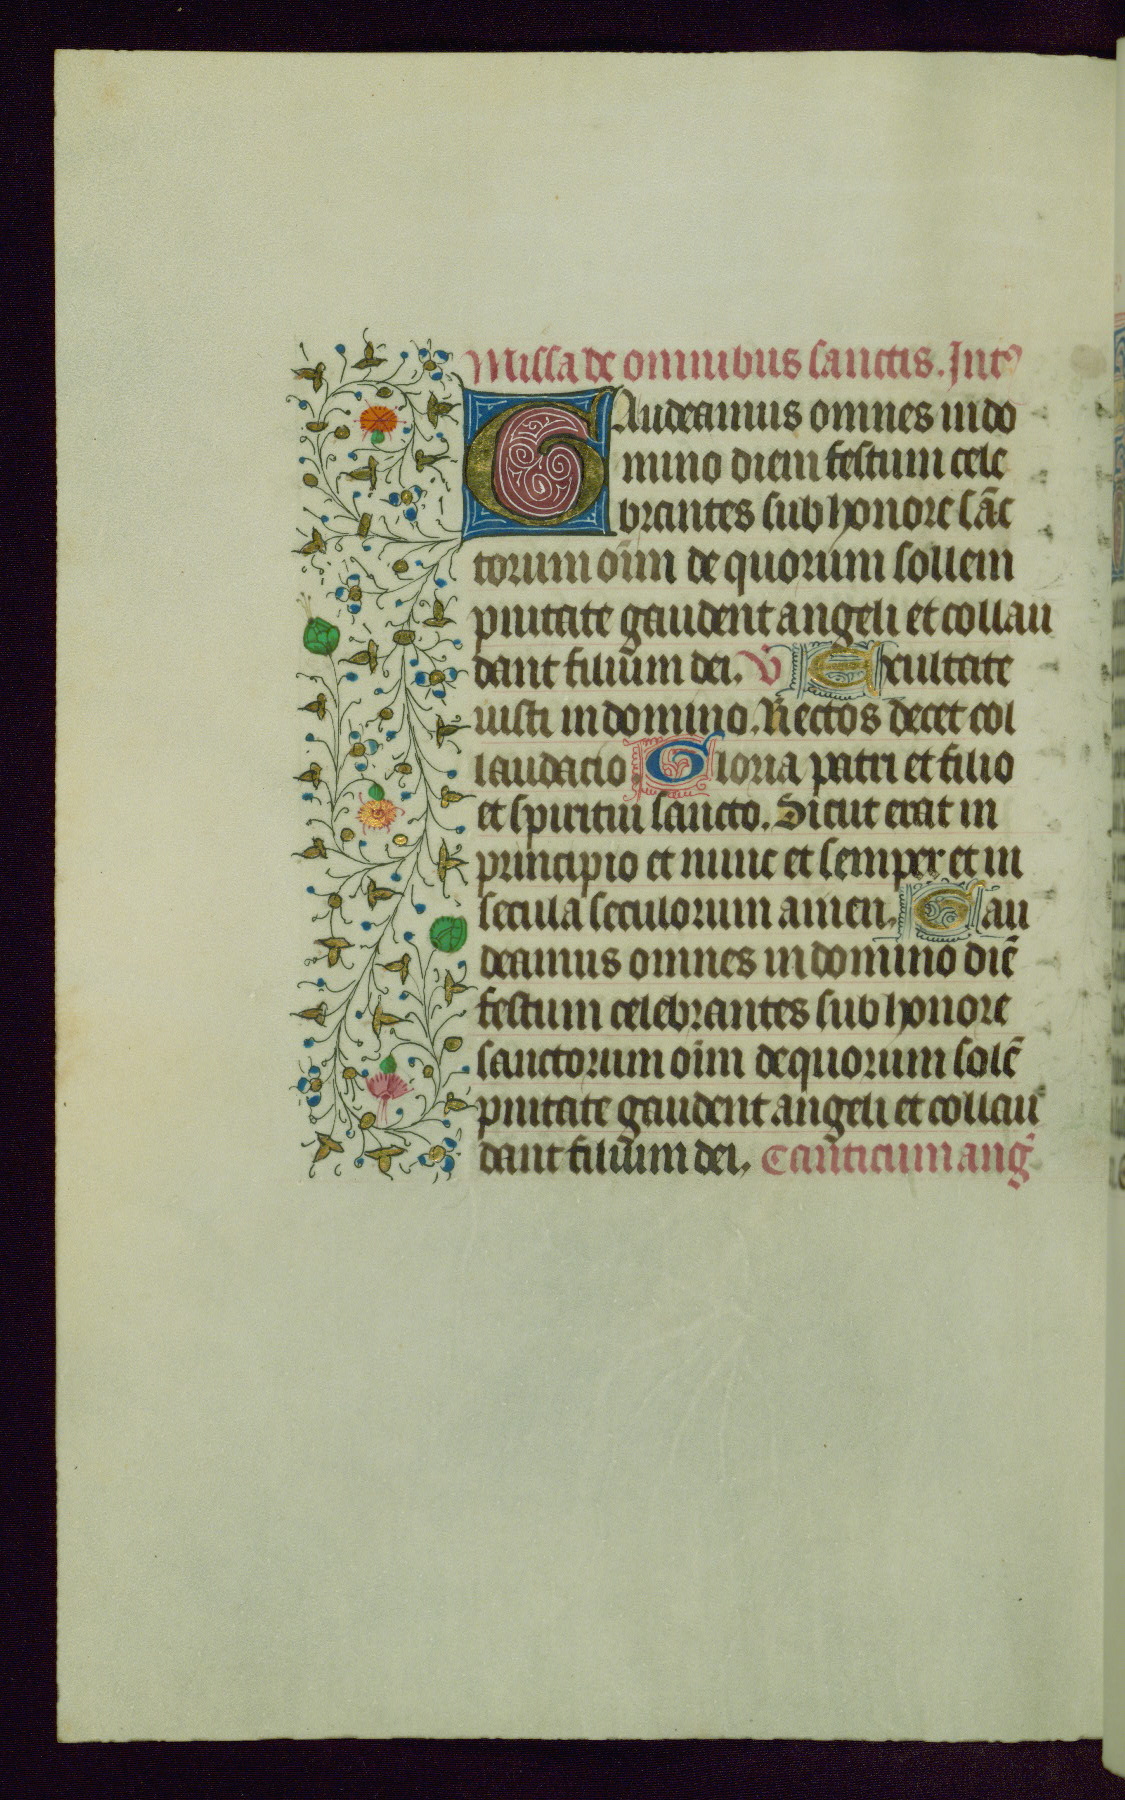 Missa de omnibus sanctis. Int᷒
GAudeamus omnes in do
mino diem festum cele
brantes sub honore sāc
torum oīm de quorum sollem
pnitate gaudent angeli et collau
dant filium dei. V Exultate
iusti in domino. Rectos decet col
laudacio. Gloria patri et filio
et spiritui sancto. Sicut erat in
principio et nunc et semper et in
secula seculorum amen. Gau
deamus omnes in domino diē
festum celebrantes sub honore
sanctorum oīm de quorum solē
pnitate gaudent angeli et collau
dant filium dei. Canticum ang̃